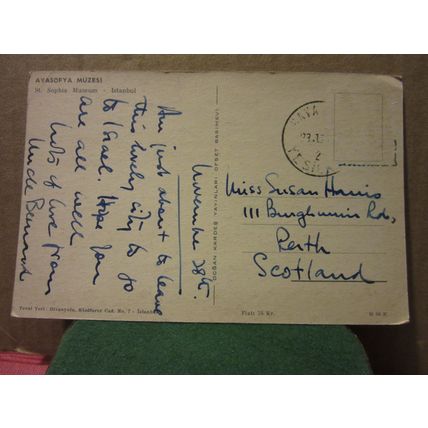 AYASOFYA MÜZESİ
St. Sophia Museum - Istanbul
November 28th.
Am just about to leave
this lovely city to go
to Israel. Hope you
are all well
Lots of love from
Uncle Bernard
DOĞAN KARDEŞ YAYINLARI OFSET BASIMEVİ
Miss Susan Harris
111 Rd,
Perth
Scotland
Tevzi Yeri : Divanyolu, Klodfarer Cad. No. 7 - İstanbul
Fiatı 75 Kr.